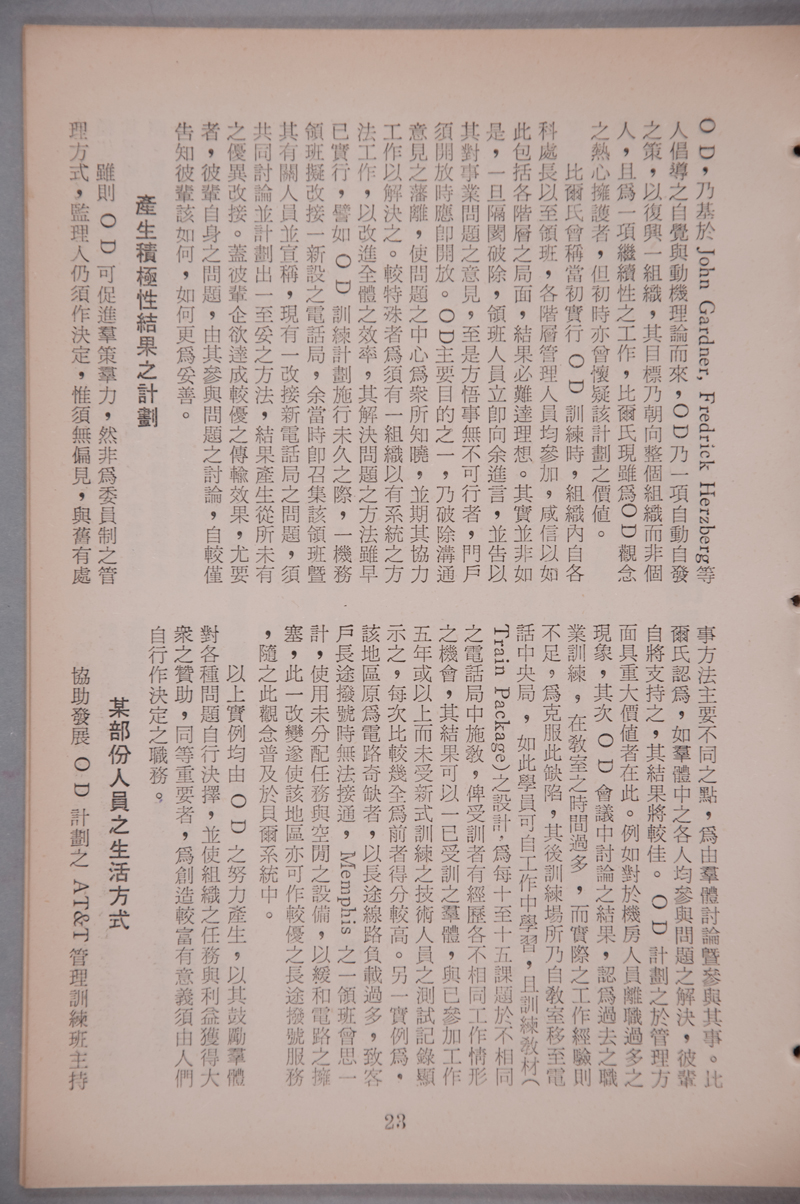 O D，乃基於 John Gardner, Fredrick Herzberg等
人倡導之自覺與動機理論而來，O D乃一項自動自發
之策，以復興一組織，其目標乃朝向整個組織而非個
人，且爲一項繼續性之工作，比爾氏現雖爲O D觀念
之熱心擁護者，但初時亦曾懷疑該計劃之價值。
比爾氏曾稱當初實行 O D 訓練時，組織內自各
科處長以至領班，各階層管理人員均參加，咸信以如
此包括各階層之局面，結果必難達理想。其實並非如
是，一旦隔閡破除，領班人員立卽向余進言，並告以
其對事業問題之意見，至是方悟事無不可行者，門戶
須開放時應卽開放。O D主要目的之一，乃破除溝通
意見之藩離，使問題之中心爲衆所知曉，並期其協力
工作以解決之。較特殊者爲須有一組織以有系統之方
法工作，以改進全體之效率，其解決問題之方法雖早
已實行，譬如 O D 訓練計劃施行未久之際，一機務
領班擬改接一新設之電話局，余當時卽召集該領班曁
其有關人員並宣稱，現有一改接新電話局之問題，須
共同討論並計劃出一至妥之方法，結果產生從所未有
之優異改接。蓋彼輩企欲達成較優之傳輸效果，尤要
者，彼輩自身之問題，由其參與問題之討論，自較僅
告知彼輩該如何，如何更爲妥善。
產生積極性結果之計劃
雖則 O D 可促進羣策羣力，然非爲委員制之管
理方式，監理人仍須作決定，惟須無偏見，與舊有處
事方法主要不同之點，爲由羣體討論曁參與其事。比
爾氏認爲，如羣體中之各人均參與問題之解決，彼輩
自將支持之，其結果將較佳。 O D 計劃之於管理方
面具重大價值者在此。例如對於機房人員離職過多之
現象，其次 O D 會議中討論之結果，認爲過去之職
業訓練，在敎室之時間過多，而實際之工作經驗則
不足，爲克服此缺陷，其後訓練場所乃自敎室移至電
話中央局，如此學員可自工作中學習，且訓練敎材(
Train Package)之設計，爲每十至十五課題於不相同
之電話局中施敎，俾受訓者有經歷各不相同工作情形
之機會，其結果可以一已受訓之羣體，與已參加工作
五年或以上而未受新式訓練之技術人員之測試記錄顯
示之，每次比較幾全爲前者得分較高。另一實例爲，
該地區原爲電路奇缺者，以長途線路負載過多，致客
戶長途撥號時無法接通，Memphis 之一領班曾思一
計，使用未分配任務與空閒之設備，以緩和電路之擁
塞，此一改變遂使該地區亦可作較優之長途撥號服務
，隨之此觀念普及於貝爾系統中。
以上實例均由 O D 之努力產生，以其鼓勵羣體
對各種問題自行決擇，並使組織之任務與利益獲得大
衆之贊助，同等重要者，爲創造較富有意義須由人們
自行作決定之職務。
某部份人員之生活方式
協助發展 O D 計劃之 AT&T 管理訓練班主持
23